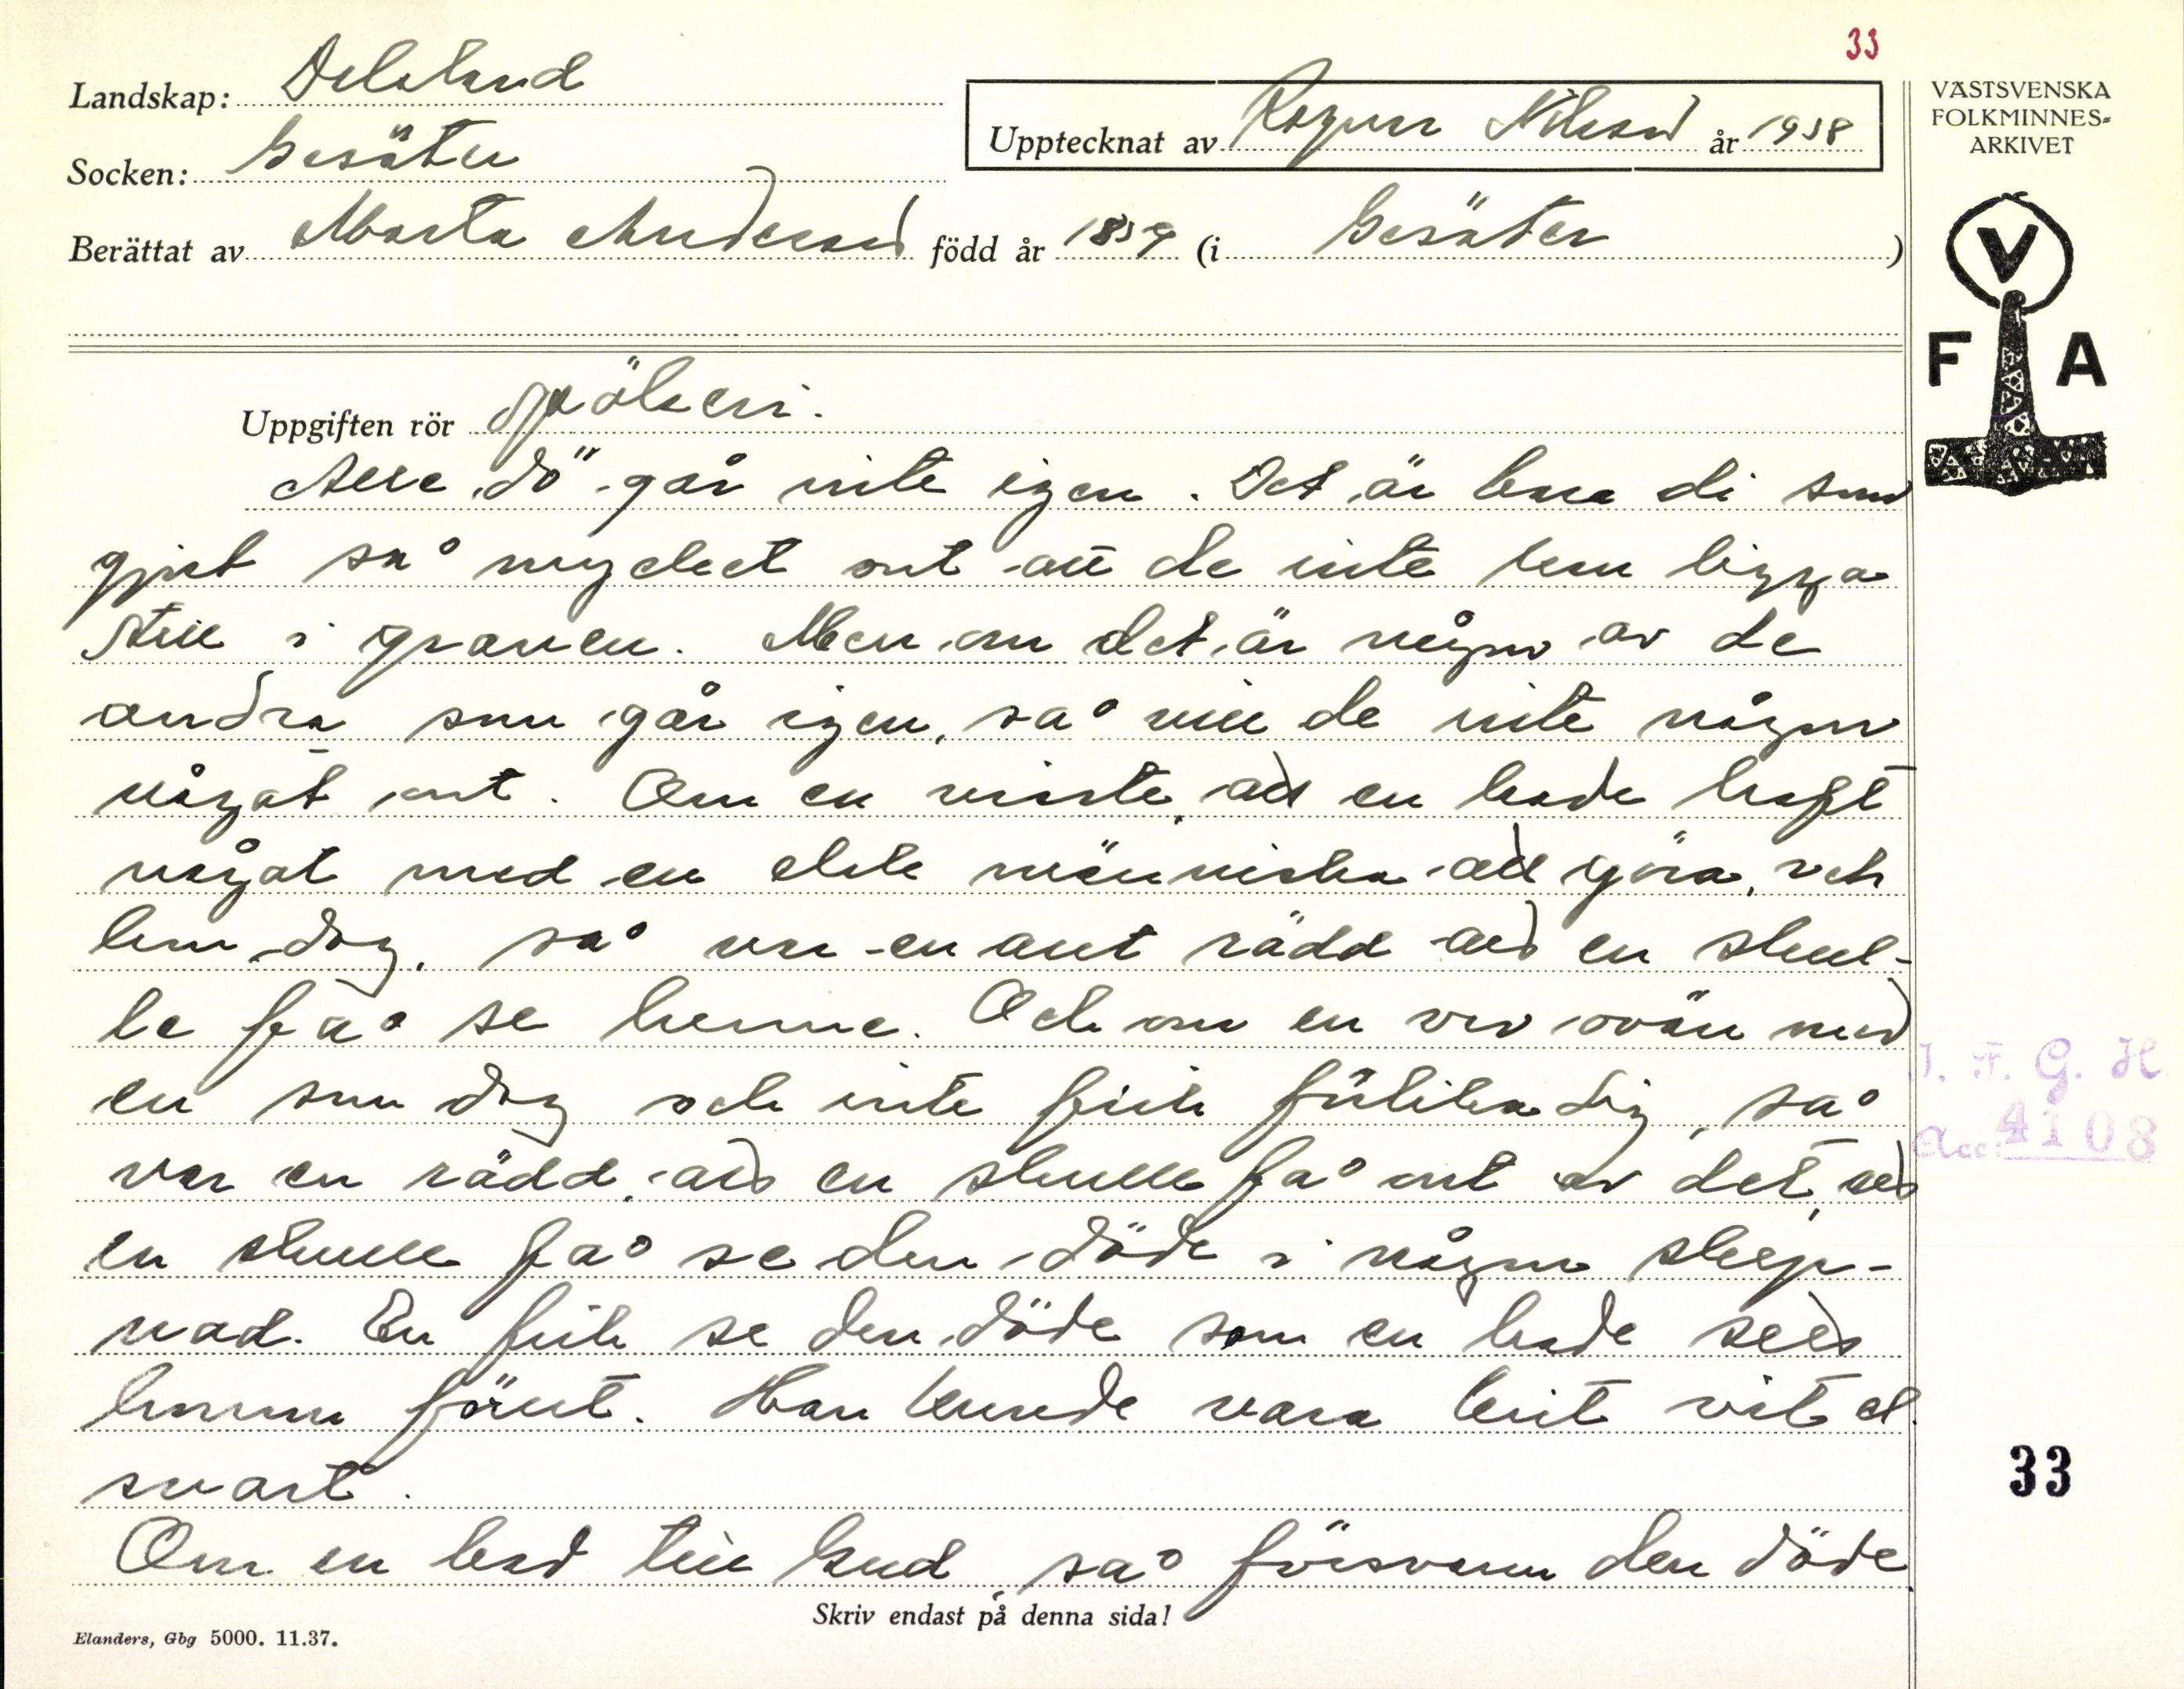 33
Landskap: Dalsland
Socken: Gesäter
Upptecknat av Ragnar Nilsson år 1938
Berättat av Marta Andersson född år 1859 (i Gesäter)
VÄSTSVENSKA
FOLKMINNES-
ARKIVET
V
F A
Uppgiften rör spökeri.
Alla dö går inte igen. Det är bara di som
gjort så mycket ont att de inte kan ligga
still i graven. Men om det är någon av de
andra som går igen, så vill de inte någon
något ont. Om en visste att en hade haft
något med en elak människa att göra, och
hon dog, så var en allt rädd att en skul-
le få se henne. Och om en var ovän med
en som dog och inte fick förlika sig, så
var en rädd att en skulle få ont av det, att
en skulle få se den döde i någon skep-
nad. En fick se den döde som en hade sett
honom förut. Han kunde vara klätt vitt el.
svart.
Om en bad till Gud, så försvann den döde.
I. F. G. H.
Acc. 4108
33
Skriv endast på denna sida!
Elanders, Gbg 5000. 11.37.